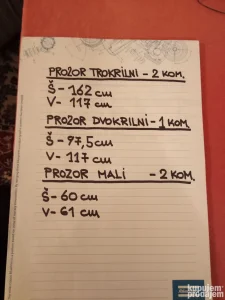 PROZOR TROKRILNI - 2 KOM.
Š - 162 cm
V - 117 cm
PROZOR DVOKRILNI - 1 KOM.
Š - 97,5 cm
V - 117 cm
PROZOR MALI - 2 KOM.
Š - 60 cm
V - 61 cm
kupujem prodajem